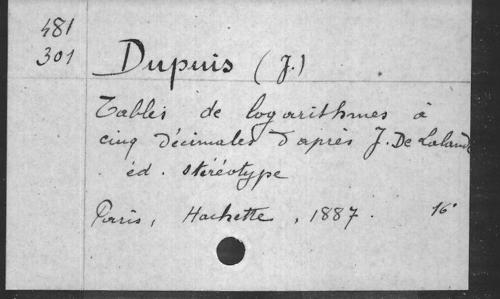 481
301
Dupuis (J.)
Tables de logarithmes à
cinq décimales d'après J. De Lalande
éd. stéréotype
Paris, Hachette, 1887. 16°